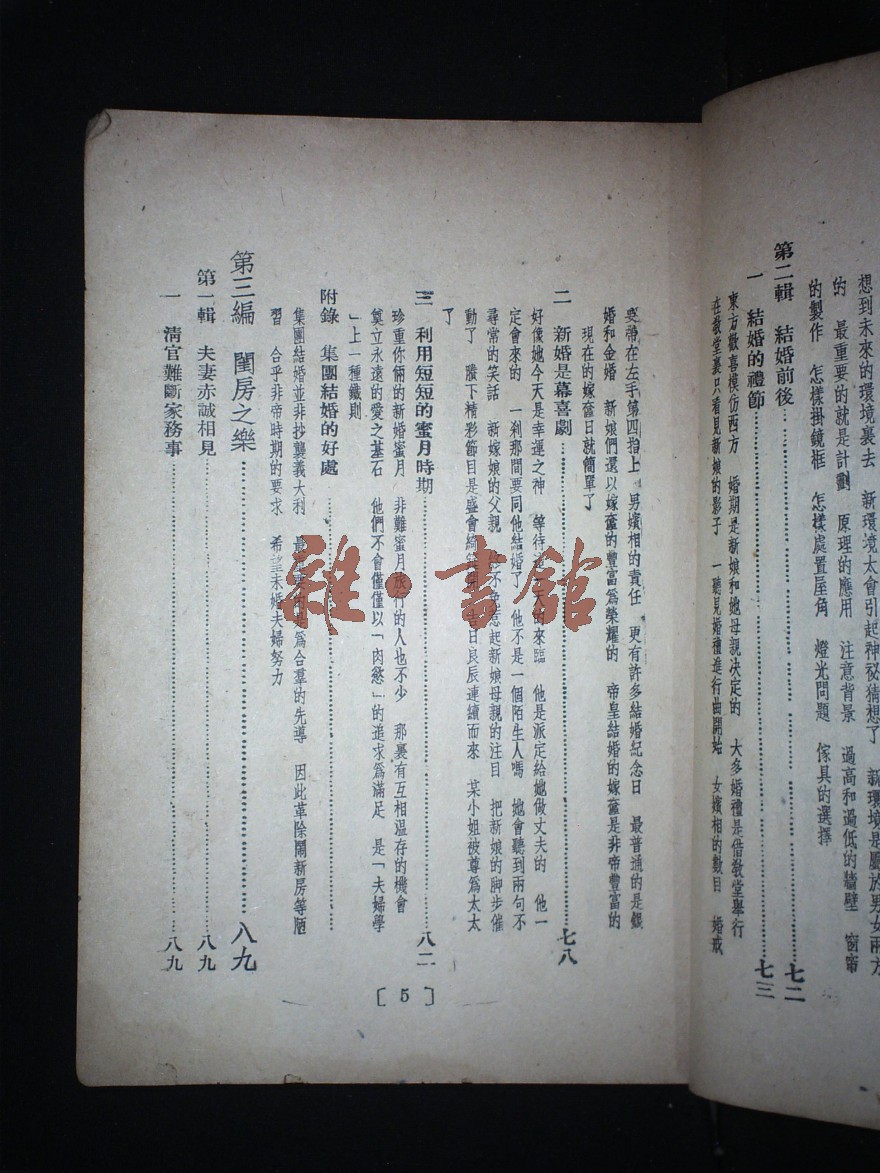 想到未來的環境裏去　新環境太會引起神祕猜想了　新環境是屬於男女兩方
的　最重要的就是計劃　原理的應用　注意背景　過高和過低的牆壁　窗帘
的製作　怎樣掛鏡框　怎樣處置屋角　燈光問題　傢具的選擇
第二輯　結婚前後……七二
一　結婚的禮節……七三
東方歡喜模仿西方　婚期是新娘和她母親決定的　大多婚禮是借教堂舉行
在教堂裏只看見新娘的影子　一聽見婚禮進行曲開始　女嬪相的數目　婚戒
要帶在左手第四指上　男嬪相的責任　更有許多結婚紀念日　最普通的是銀
婚和金婚　新娘們還以嫁奩的豐富爲榮耀的　帝皇結婚的嫁奩是非帝豐富的
現在的嫁奩日就簡單了
二　新婚是幕喜劇……七八
好像她今天是幸運之神　等待這一天的來臨　他是派定給她做丈夫的　他一
定會來的　一剎那間要同他結婚了　他不是一個陌生人嗎　她會聽到兩句不
尋常的笑話　新嫁娘的父親　終不免惹起新娘母親的注目　把新娘的脚步催
動了　賸下精彩節目是盛會　吉日良辰連續而來　某小姐被尊爲太太
了
三　利用短短的蜜月時期……八二
珍重你倆的新婚蜜月　非難蜜月旅行的人也不少　那裏有互相温存的機會
奠立永遠的愛之基石　他們不會僅僅以「肉慾」的追求爲滿足　是「夫婦學
」上一種鐵則
附錄　集團結婚的好處……
集團結婚並非抄襲義大利　最要的是爲合羣的先導　因此革除鬧新房等陋
習　合乎非帝時期的要求　希望未婚夫婦努力
第三編　閨房之樂……八九
第一輯　夫妻赤誠相見……八九
一　淸官難斷家務事……八九
[5]
雜·書館